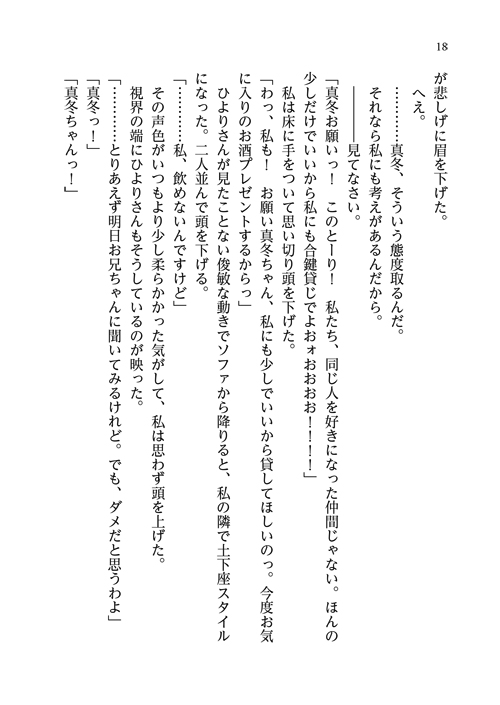 18
が悲しげに眉を下げた。
へえ。
…………真冬、そういう態度取るんだ。
それなら私にも考えがあるんだから。
――――見てなさい。
「真冬お願いっ！　このとーり！　私たち、同じ人を好きになった仲間じゃない。ほんの
少しだけでいいから私にも合鍵貸じでよおォおおおお！！！！」
私は床に手をついて思い切り頭を下げた。
「わっ、私も！　お願い真冬ちゃん、私にも少しでいいから貸してほしいのっ。今度お気
に入りのお酒プレゼントするからっ」
ひよりさんが見たことない俊敏な動きでソファから降りると、私の隣で土下座スタイル
になった。二人並んで頭を下げる。
「…………私、飲めないんですけど」
その声色がいつもより少し柔らかかった気がして、私は思わず頭を上げた。
視界の端にひよりさんもそうしているのが映った。
「…………とりあえず明日お兄ちゃんに聞いてみるけれど。でも、ダメだと思うわよ」
「真冬っ！」
「真冬ちゃんっ！」